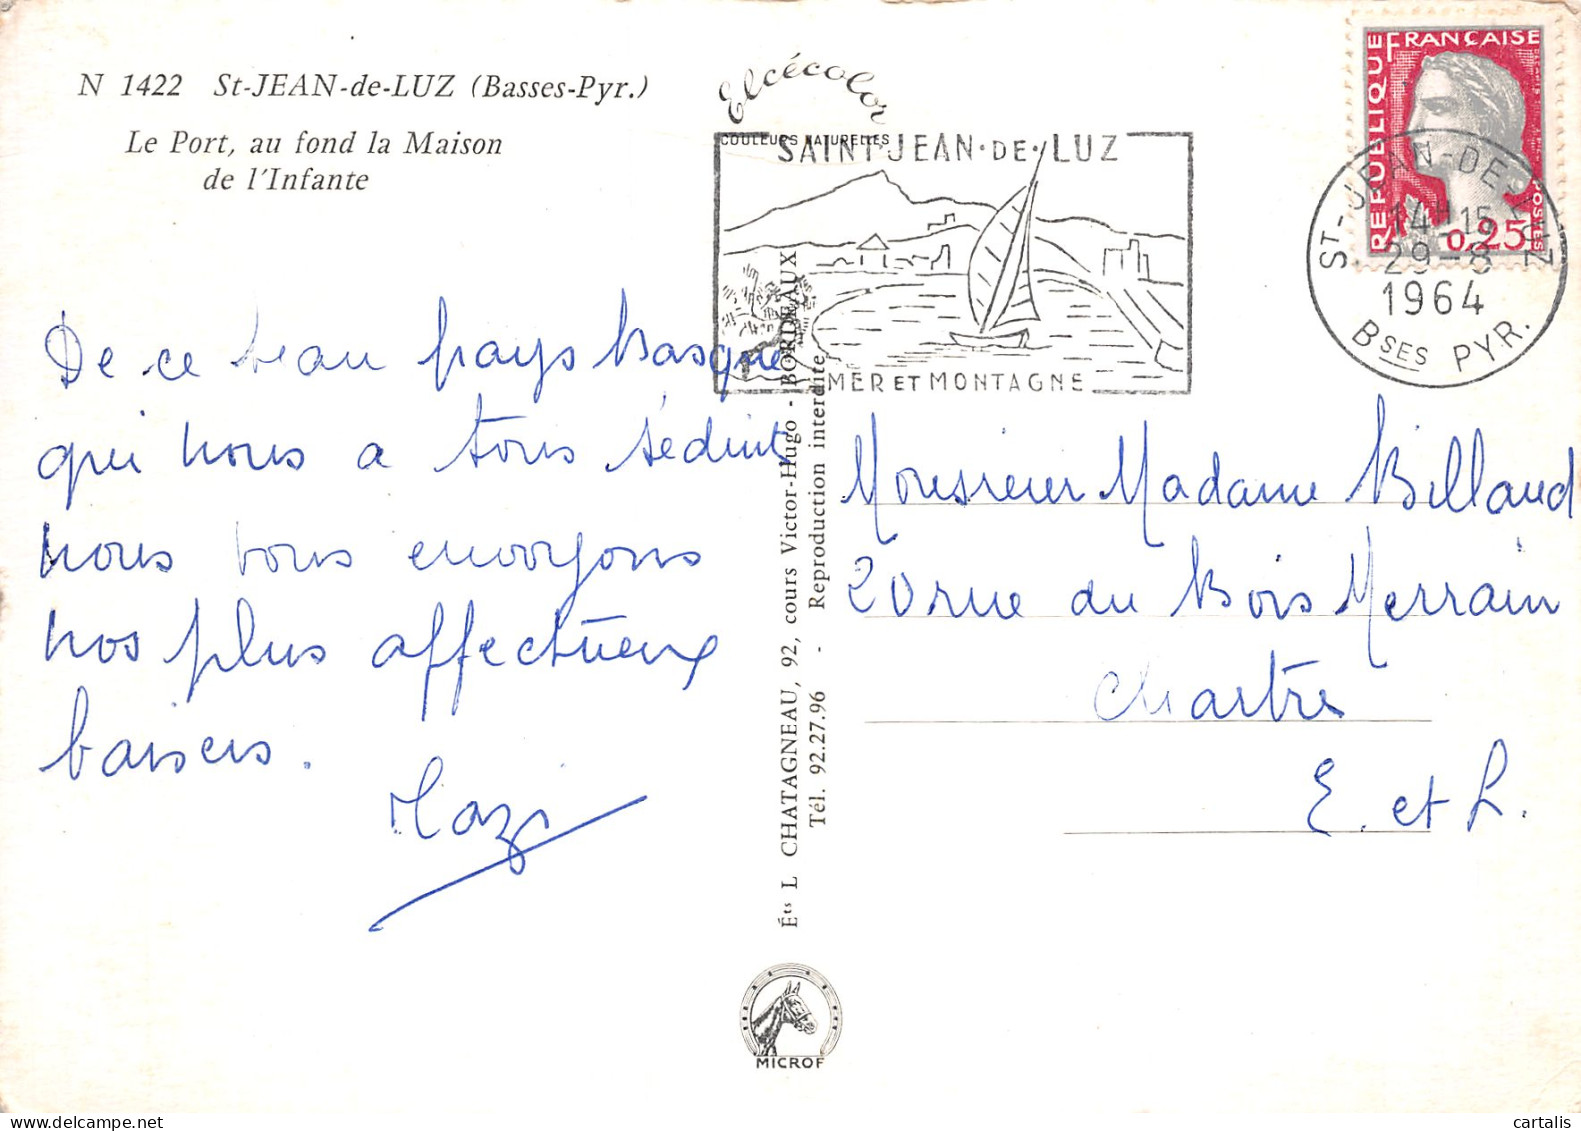 N 1422 St-JEAN-de-LUZ (Basses-Pyr.)
Le Port, au fond la Maison
de l'Infante
Elcécolor
COULEURS NATURELLES
SAINT-JEAN·DE·LUZ
MER ET MONTAGNE
RÉPUBLIQUE FRANÇAISE
POSTES
0,25
ST-JEAN-DE-LUZ
14H15
29-8
1964
BSES PYR.
De ce beau pays basque
qui nous a tous séduits
nous vous envoyons
nos plus affectueux
baisers.
Monsieur Madame Billaud
20 rue du Bois Merrain
Chartres
E. et L.
Éts L CHATAGNEAU, 92, cours Victor-Hugo - BORDEAUX
Tél. 92.27.96 - Reproduction interdite
MICROF
cartalis